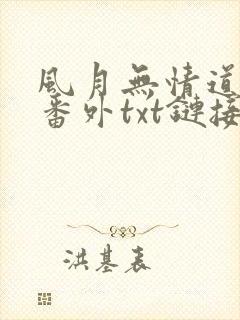 風月無情道
番外txt鏈接
洪基表